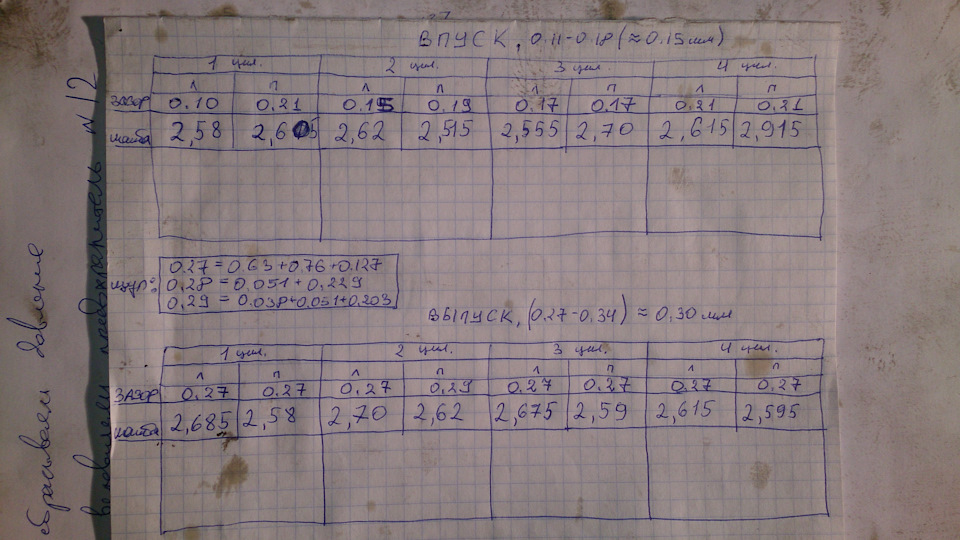 ВПУСК, 0.11-0.18 (≈0.15мм)
1 цил. 2 цил. 3 цил. 4 цил.
л п л п л п л п
ЗАЗОР 0.10 0.21 0.15 0.19 0.17 0.17 0.21 0.21
шайба 2,58 2,605 2,62 2,515 2,555 2,70 2,615 2,915
щуп: 0.27 = 0.63+0.76+0.127
0.28 = 0.051+0.229
0.29 = 0.038+0.051+0.203
ВЫПУСК, (0.27-0.34) ≈ 0.30мм
1 цил. 2 цил. 3 цил. 4 цил.
л п л п л п л п
ЗАЗОР 0.27 0.27 0.27 0.29 0.27 0.27 0.27 0.27
шайба 2,685 2,58 2,70 2,62 2,675 2,59 2,615 2,595
сбрасываем давление
предохранитель N 12